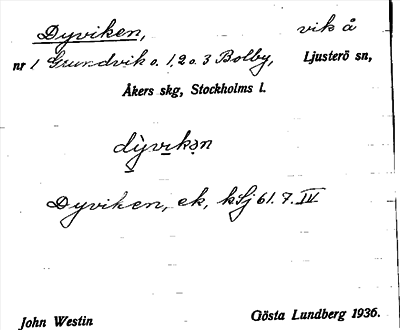 Dyviken, vik å
nr 1 Grundvik o. 1, 2 o. 3 Bolby, Ljusterö sn,
Åkers skg, Stockholms l.
dy̆vikən
Dyviken, ek, kSj 61. 7. IV
John Westin Gösta Lundberg 1936.